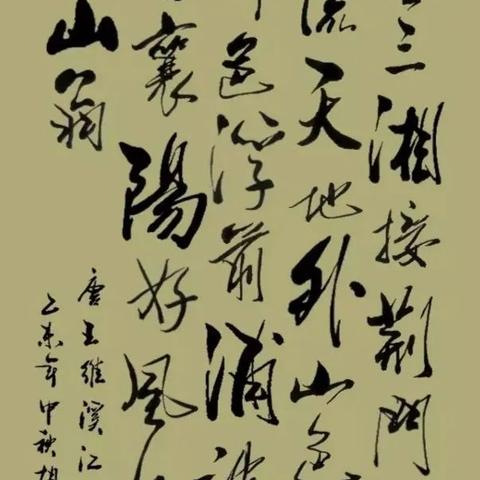 三湘接荆門
流天地外山色
邑浮前浦波
襄陽好風
山翁
唐王維漢江
乙未年中秋胡